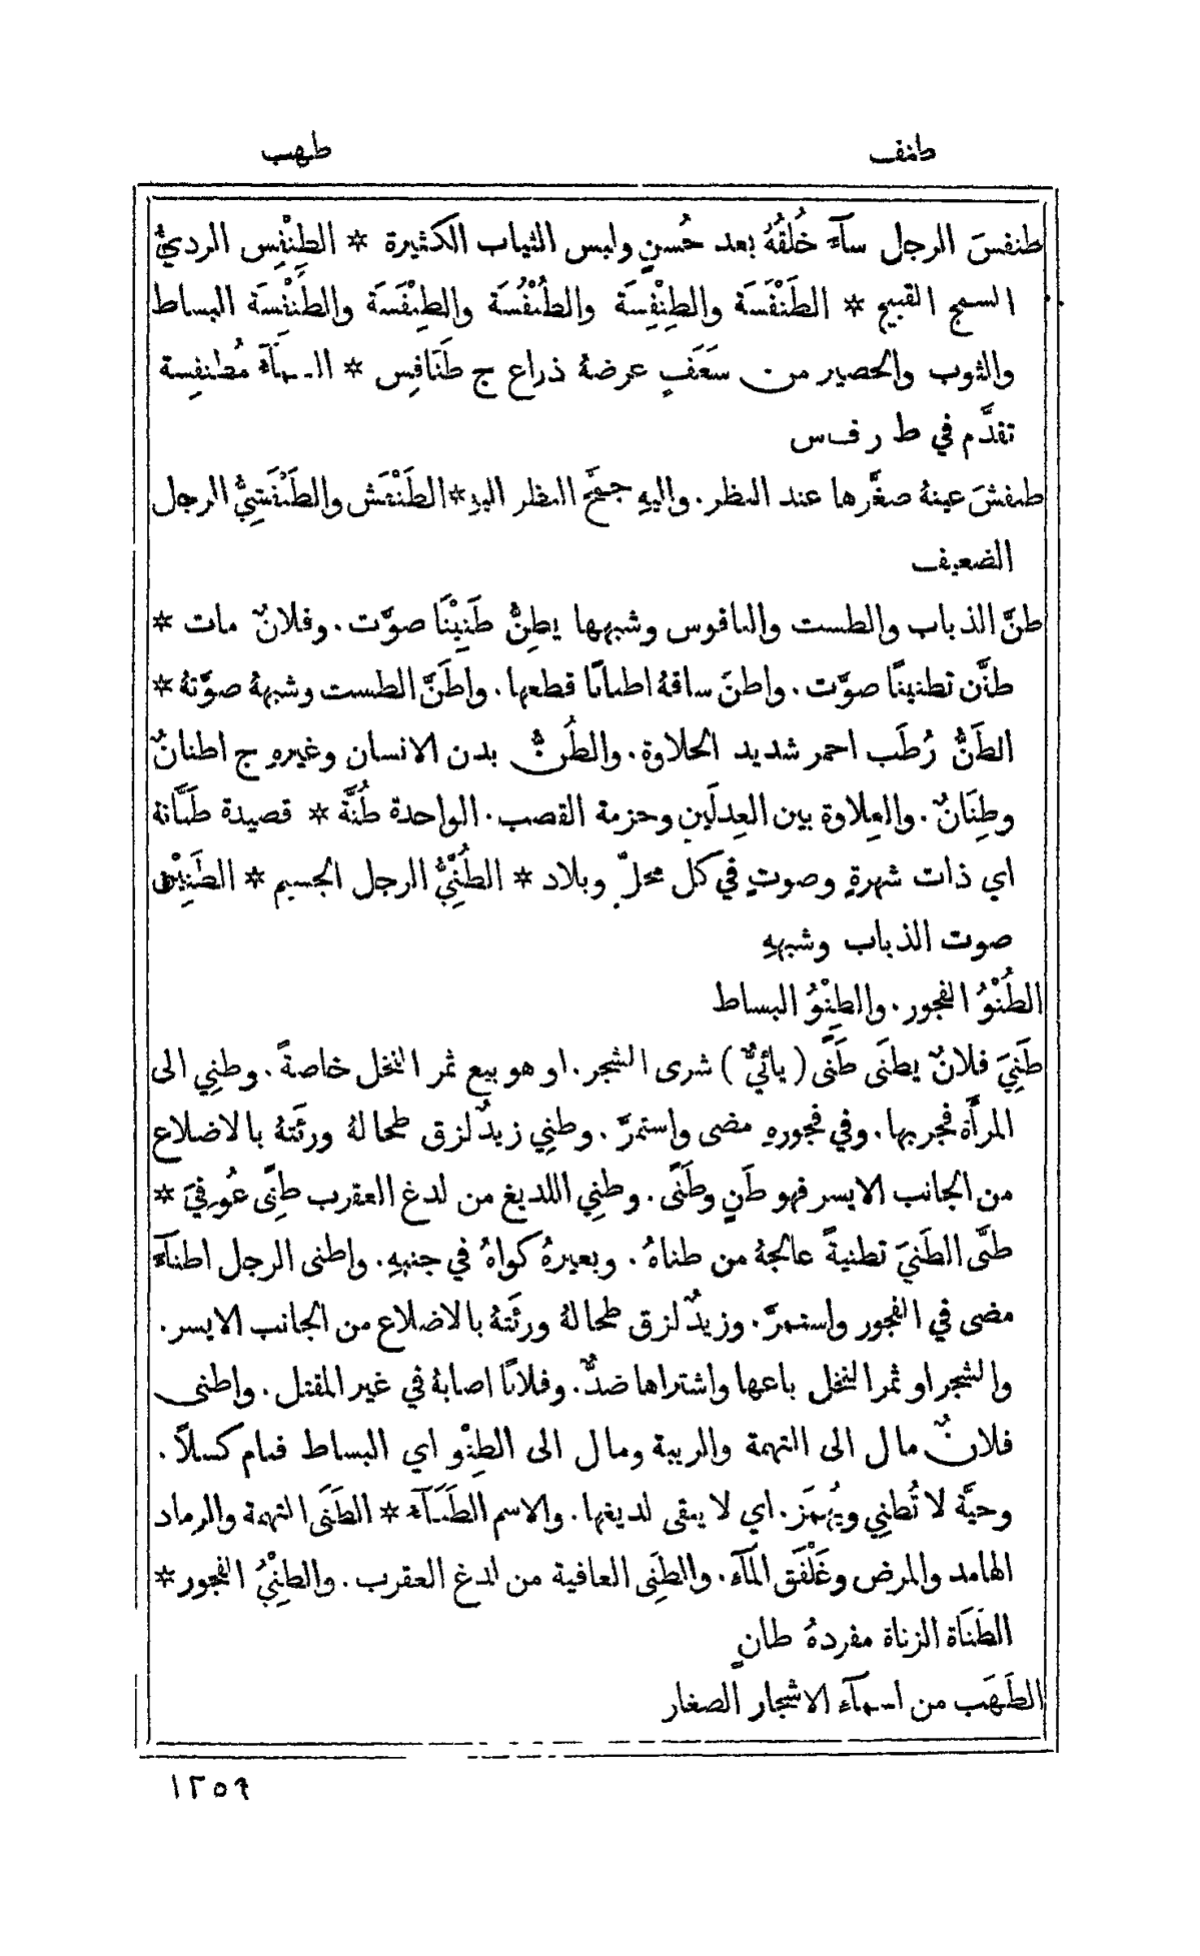 طنف
طهب
طنفسَ الرجل سآء خُلقُهُ بعد حُسنٍ ولبس الثياب الكثيرة * الطِنْفِس الرديُّ
السمج القبيح * الطَنْفَسَة والطِنْفِسَة والطُنْفُسَة والطِنْفَسَة والطَنْفِسَة البساط
والثوب والحصير من سَعَفٍ عرضهُ ذراع ج طَنَافِس * السمآء مُطنفِسة
تقدَّم في ط ر ف س
طنفشَ عينهُ صغَّرها عند النظر. واليهِ جمَّح النظر اليهِ * الطَنْفَش والطَنْفَشِيُّ الرجل
الضعيف
طنَّ الذباب والطست والناقوس وشبهها يطِنُّ طَنِيْنًا صوَّت. وفلانٌ مات *
طنَّن تطنينًا صوَّت. واطنَّ ساقهُ اطنانًا قطعها. واطَنَّ الطست وشبههُ صوَّتهُ *
الطَنُّ رُطَب احمر شديد الحلاوة. والطُنُّ بدن الانسان وغيرهِ ج اطنانٌ
وطِنَانٌ. والعِلاوة بين العِدلَينِ وحزمة القصب. الواحدة طُنَّة * قصيدة طنَّانة
اي ذات شهرةٍ وصوتٍ في كل محلٍّ وبلاد * الطُنِّيُّ الرجل الجسيم * الطَنِيْن
صوت الذباب وشبههِ
الطُنْوُ الفجور. والطِنْوُ البساط
طَنِيَ فلانٌ يطنَى طَنًى (يائيٌّ) شرى الشجر. او هو بيع ثمر النخل خاصةً. وطنِي الى
المرأَة فجر بها. وفي فجورهِ مضى واستمرَّ. وطنِي زيدٌ لزق طحالهُ ورئَتهُ بالاضلاع
من الجانب الايسر فهو طَنٍ وطَنًى. وطنِي اللديغ من لدغ العقرب طِنًى عُوفِيَ *
طنَّى الطَنِيَ تطنيةً عالجهُ من طناهُ. وبعيرهُ كواهُ في جنبهِ. واطنى الرجل اطنآءً
مضى في الفجور واستمرَّ. وزيدٌ لزق طحالهُ ورئَتهُ بالاضلاع من الجانب الايسر.
والشجر او ثمر النخل باعها واشتراها ضدٌّ. وفلانًا اصابهُ في غير المقتل. واطنى
فلانٌ مال الى التهمة والريبة ومال الى الطِنْو اي البساط فنام كسلاً.
وحيَّة لا تُطنِي ويُهمَز. اي لا يبقى لديغها. والاسم الطَنَآء * الطَنَى التهمة والرماد
الهامد والمرض وغَلْفَق المآء. والطِنَى العافية من لدغ العقرب. والطِنْيُ الفجور *
الطُنَاة الزناة مفردهُ طانٍ
الطَهَب من اسمآء الاشجار الصغار
١٢٥٩